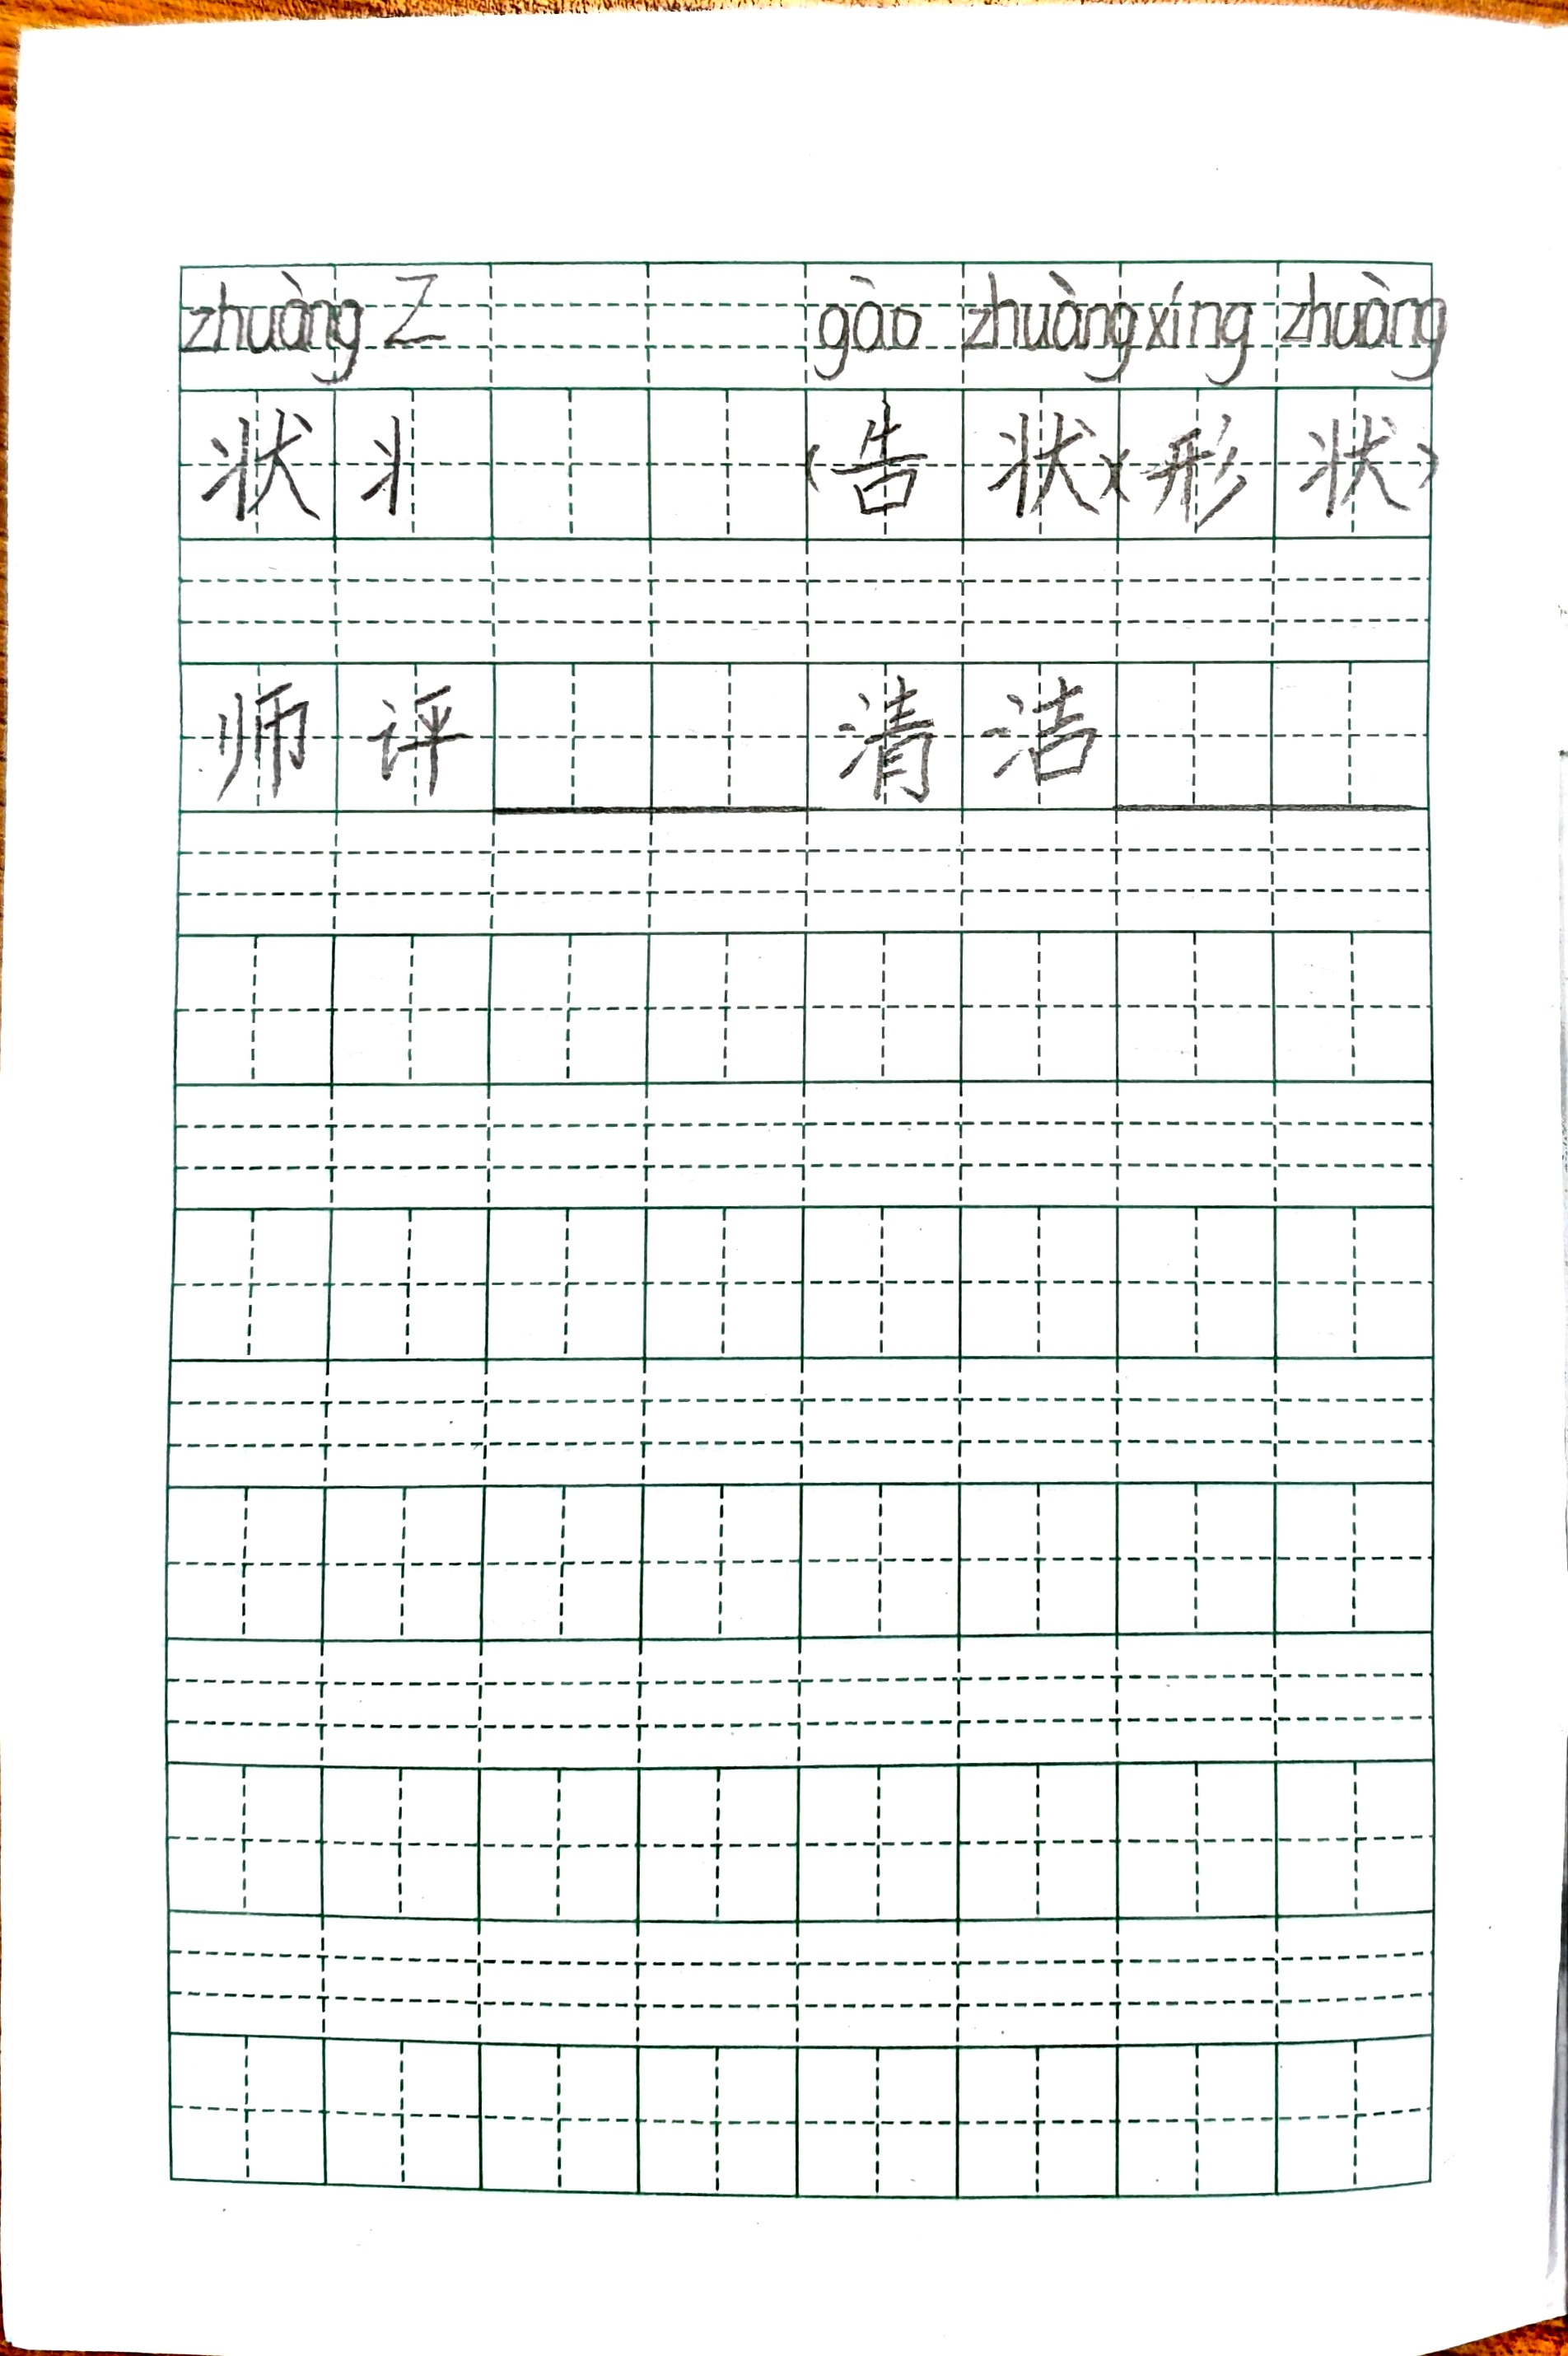 zhuàng Z gào zhuàng xíng zhuàng
状 丬 (告状)(形状)
师评 清洁